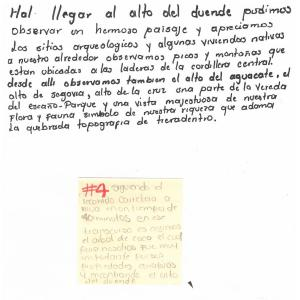 Hal llegar al alto del duende pudimos
observar un hermoso paisaje y apreciamos
Los sitios arqueologicos y algunas viviendas nativas
a nuestro alrededor observamos picos y montañas que
estan ubicadas a las laderas de la cordillera central.
desde alli observamos tambien el alto del aguacate, el
alto de segovia, alto de la cruz una parte de la vereda
del escaño-Parque y una vista majestuosa de nuestra
Flora y fauna simbolo de nuestra riqueza que adorna
La quebrada topografia de tierradentro.
#4 siguiendo el
recorrido
40 minutos en ese
transcurso
el arbol de coca el cual
para nosotros es muy
importante
propiedades curativas
y encontrando el alto
del duende